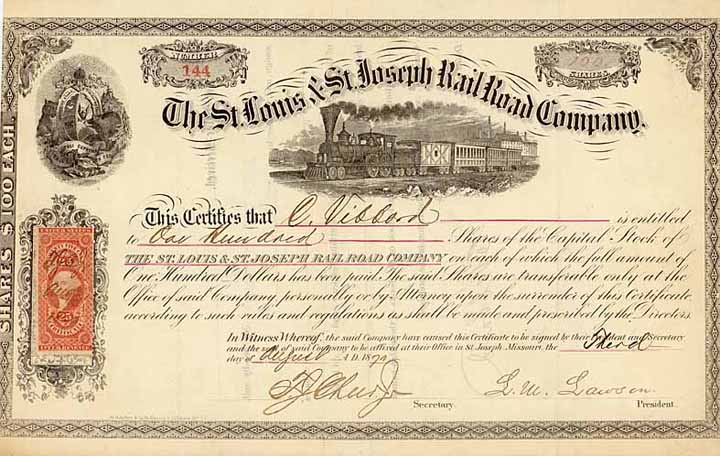 NUMBER
144
100
SHARES
The St. Louis & St. Joseph Rail Road Company.
SHARES $100 EACH.
This Certifies that C. Vibbard is entitled
to One Hundred Shares of the Capital Stock of
THE ST. LOUIS & ST. JOSEPH RAIL ROAD COMPANY on each of which the full amount of
One Hundred Dollars has been paid. The said Shares are transferable only at the
Office of said Company, personally or by Attorney upon the surrender of this Certificate,
according to such rules and regulations as shall be made and prescribed by the Directors.
In Witness Whereof, the said Company have caused this Certificate to be signed by their President and Secretary
and the seal of said Company to be affixed at their Office in St. Joseph Missouri, the Third
day of August A.D. 1870
Secretary.
L. M. Lawson
President.
UNITED STATES
25